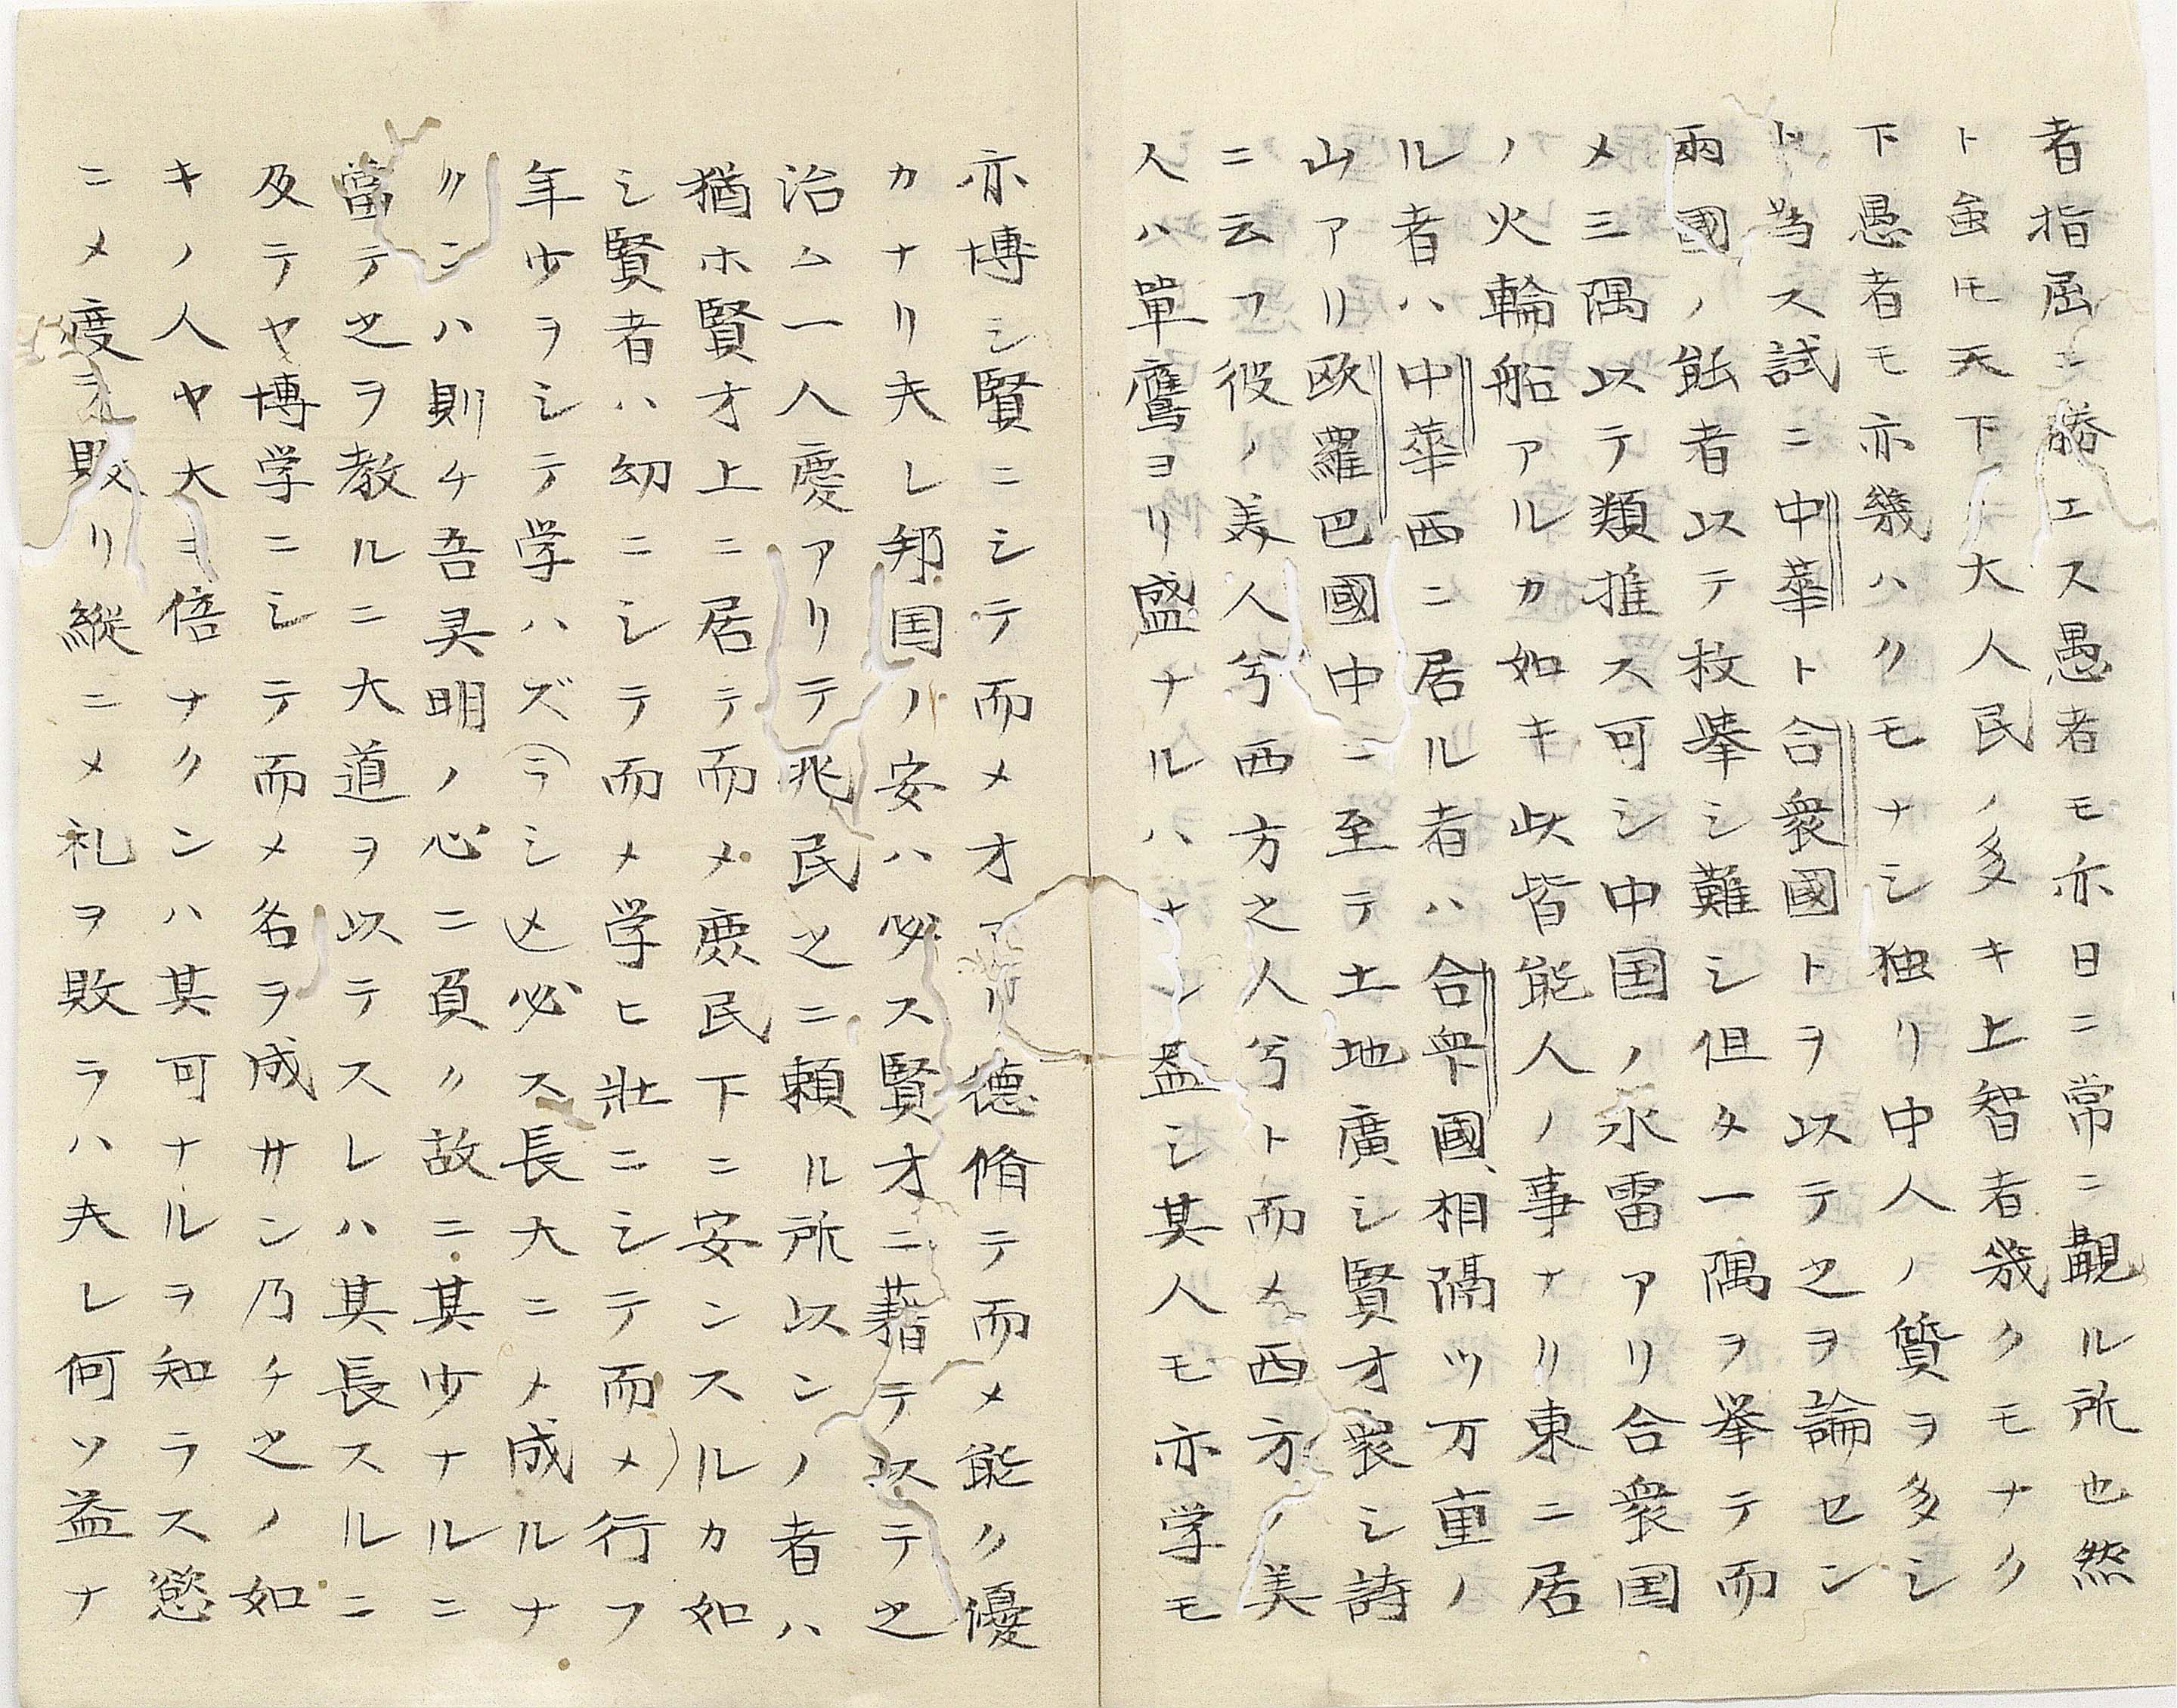 者指屈ニ勝エス愚者モ亦日ニ常ニ覯ル所也然
ト虽モ天下ノ大人民ノ多キ上智者幾クモナク
下愚者モ亦幾ハクモナシ独リ中人ノ質ヲ多シ
ト為ス試ニ中華ト合衆國トヲ以テ之ヲ論セン
兩國ノ能者以テ枚挙シ難シ但タ一隅ヲ挙テ而
メ三隅以テ類推ス可シ中国ノ水雷アリ合衆国
ノ火輪船アルカ如キ此皆能人ノ事ナリ東ニ居
ル者ハ中華西ニ居ル者ハ合衆國相隔ツ万重ノ
山アリ欧羅巴國中ニ至テ土地廣シ賢才衆シ詩
ニ云フ彼ノ美人兮西方之人兮ト而メ西方ノ美
人ハ單鷹ヨリ盛ナルハナシ盖シ其人モ亦学モ
亦博シ賢ニシテ而メ才アリ德脩テ而メ能ク優
カナリ夫レ邦国ノ安ハ必ス賢才ニ藉テ以テ之
治ム一人慶アリテ兆民之ニ頼ル所以ンノ者ハ
猶ホ賢才上ニ居テ而メ庶民下ニ安ンスルカ如
シ賢者ハ幼ニシテ而メ学ヒ壯ニシテ而メ行フ
年少ヲシテ学ハズラシメ必ス長大ニメ成ルナ
クンハ則チ吾灵明ノ心ニ負ク故ニ其少ナルニ
當テ之ヲ教ルニ大道ヲ以テスレハ其長スルニ
及テヤ博学ニシテ而メ名ヲ成サン乃チ之ノ如
キノ人ヤ大ヨ倍ナクンハ其可ナルヲ知ラス慾
ニメ度ヲ敗リ縦ニメ礼ヲ敗ラハ夫レ何ソ益ナ